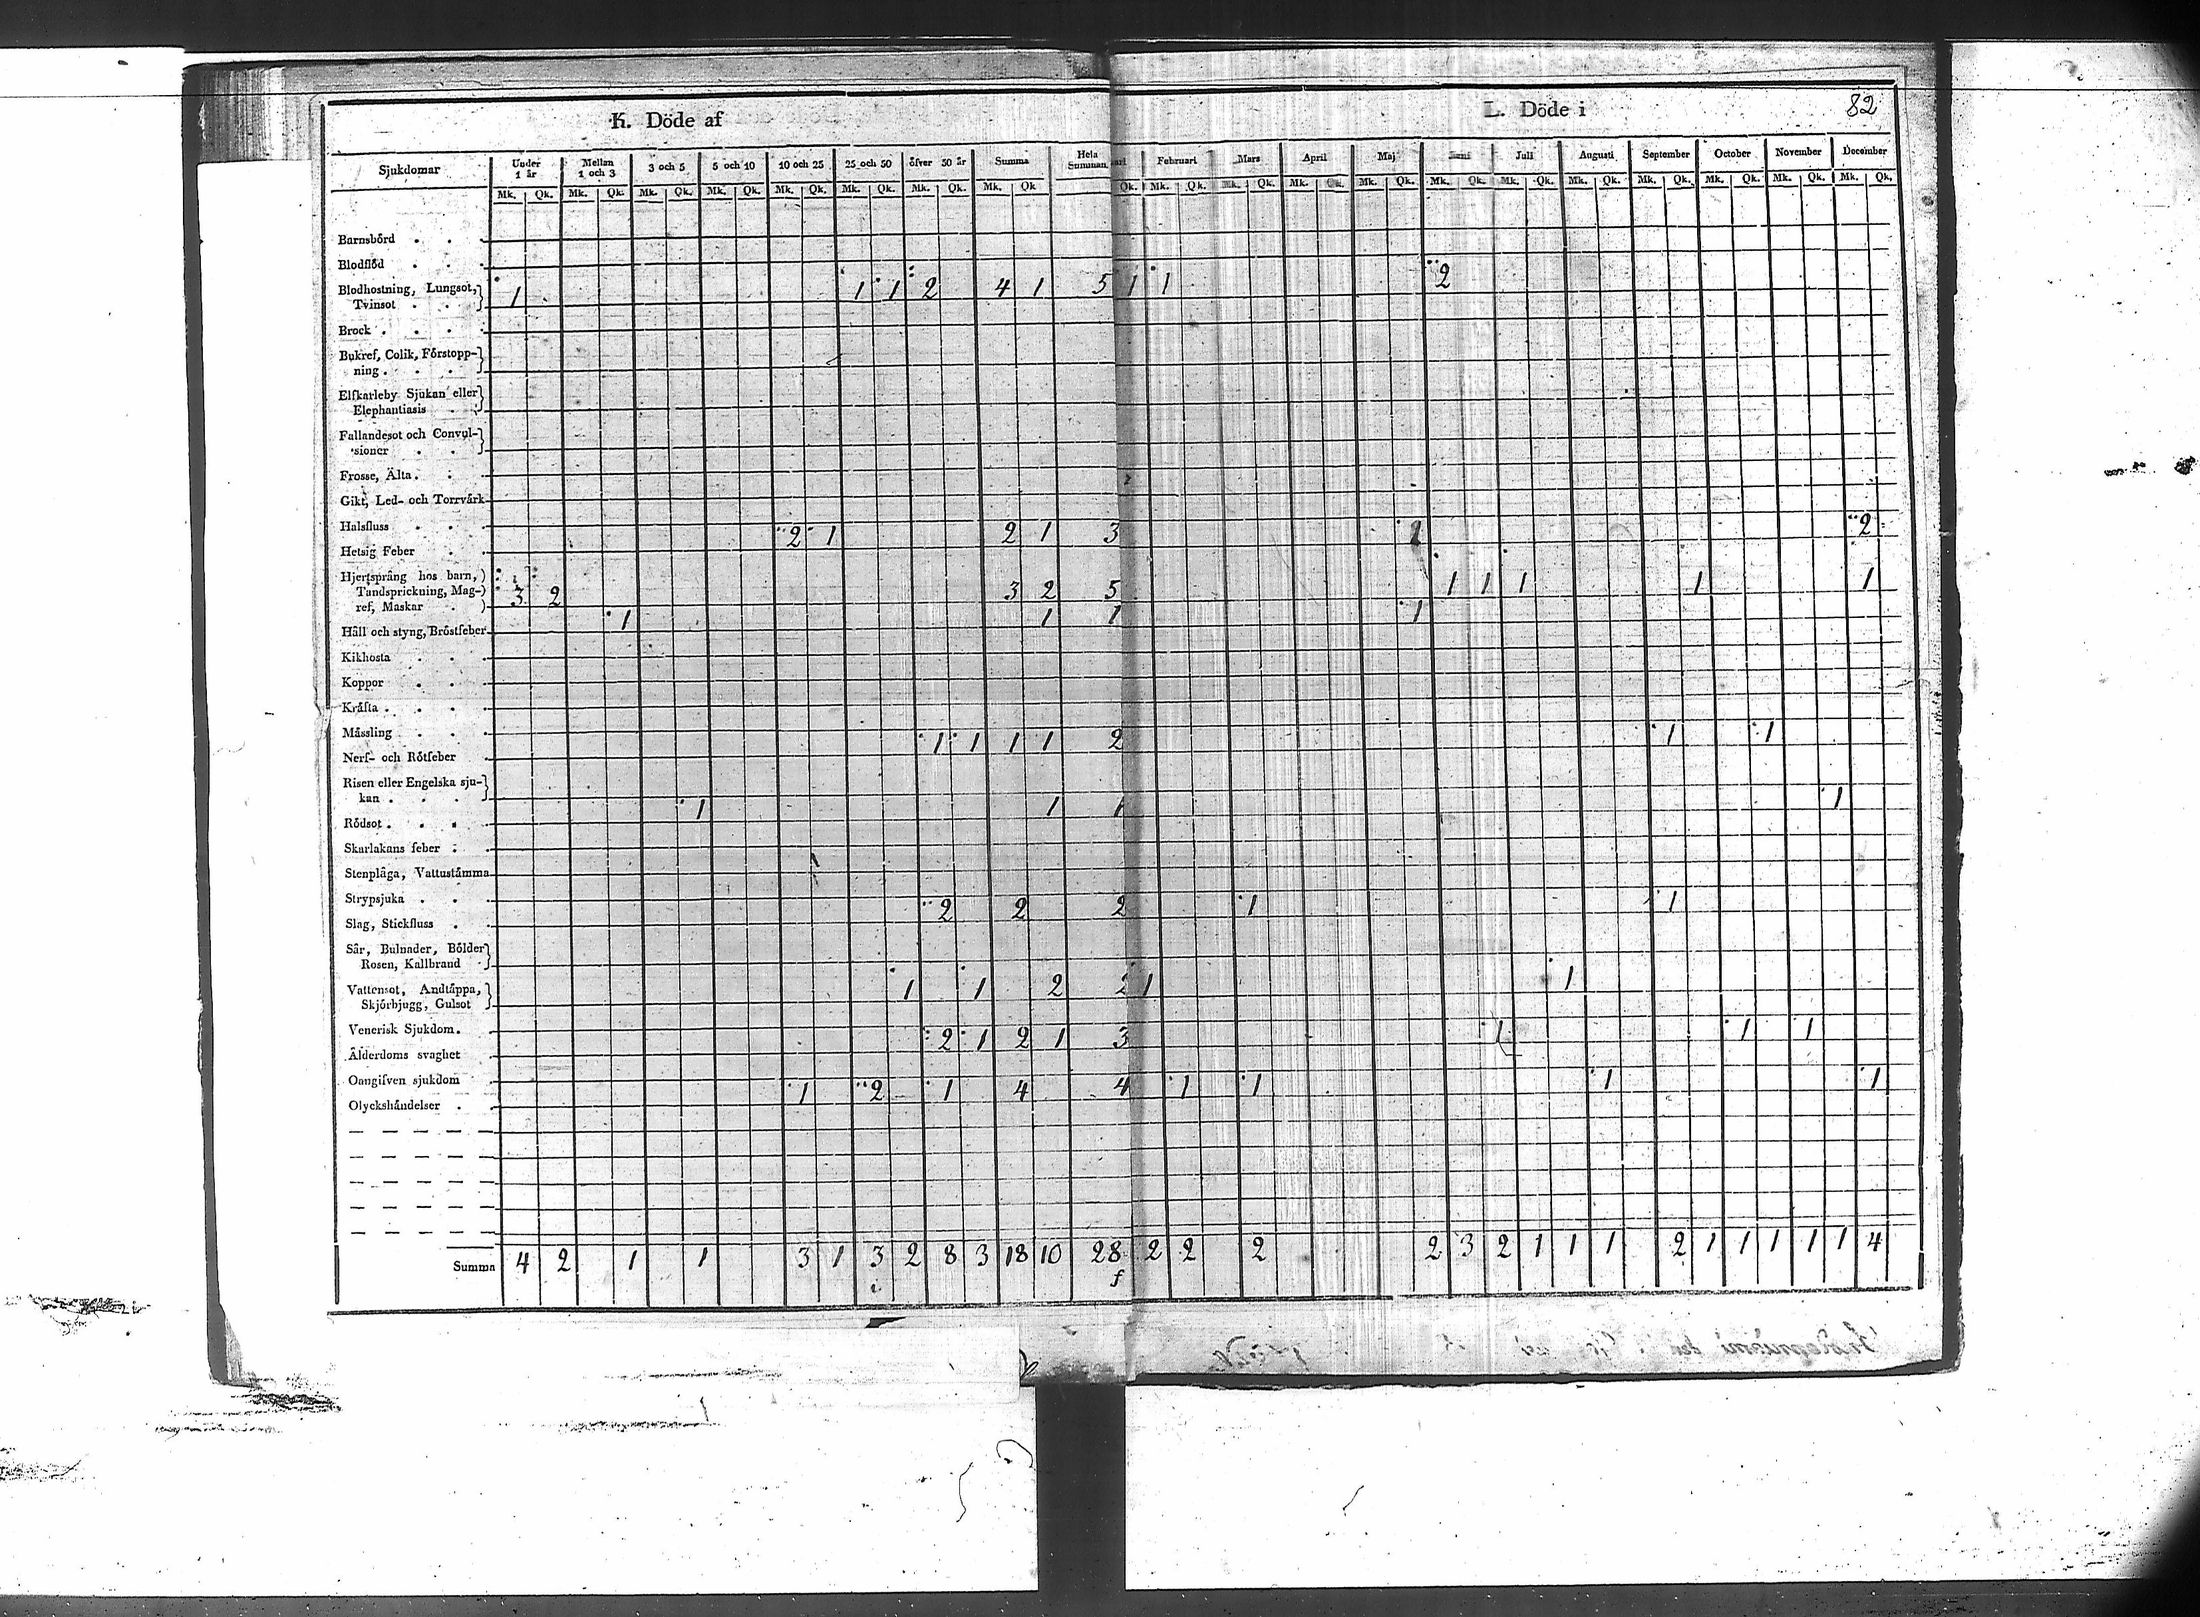 K. Döde af
L. Döde i
82
Sjukdomar
Under 1 år
Mellan 1 och 3
3 och 5
5 och 10
10 och 25
25 och 50
öfver 50 år
Summa
Hela Summan
Februari
Mars
April
Maj
Juni
Juli
Augusti
September
October
November
December
Mk. Qk. Mk. Qk. Mk. Qk. Mk. Qk. Mk. Qk. Mk. Qk. Mk. Qk. Mk. Qk
Qk. Mk. Qk. Mk. Qk. Mk. Qk. Mk. Qk. Mk. Qk. Mk. Qk. Mk. Qk. Mk. Qk. Mk. Qk. Mk. Qk. Mk. Qk.
Barnsbörd
Blodflöd
Blodhostning, Lungsot,
Tvinsot 1 1 1 2 4 1 5 1 1 2
Brock
Bukref, Colik, Förstopp-
ning
Elfkarleby Sjukan eller
Elephantiasis
Fallandesot och Convul-
sioner
Frosse, Älta
Gikt, Led- och Torrvärk
Halsfluss
Hetsig Feber 2 1 2 1 3 1 2
Hjertsprång hos barn,
Tandsprickning, Mag- 3 2 3 2 5 1 1 1 1 1
ref, Maskar
Håll och styng, Bröstfeber 1 1 1 1
Kikhosta
Koppor
Kräfta
Mässling
Nerf- och Rötfeber 1 1 1 1 2 1 1
Risen eller Engelska sju-
kan
Rödsot 1 1 1 1
Skarlakans feber
Stenplåga, Vattustämma
Strypsjuka
Slag, Stickfluss 2 2 2 1 1
Sår, Bulnader, Bölder
Rosen, Kallbrand
Vattensot, Andtäppa, 1 1 2 2 1 1
Skjörbjugg, Gulsot
Venerisk Sjukdom
Ålderdoms svaghet 2 1 2 1 3 1 1 1
Oangifven sjukdom
Olyckshändelser 1 2 1 4 4 1 1 1 1
Summa 4 2 1 1 3 1 3 2 8 3 18 10 28 2 2 2 2 3 2 1 1 1 2 1 1 1 1 1 4